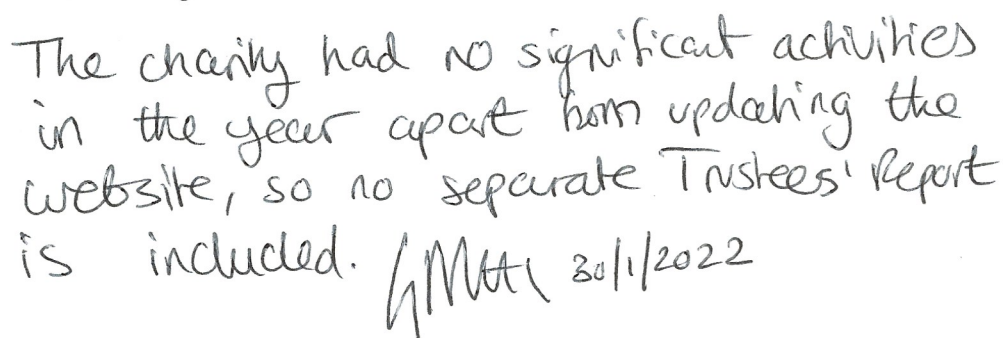 The charity had no significant activities
in the year apart from updating the
website, so no separate Trustees' Report
is included. 30/1/2022